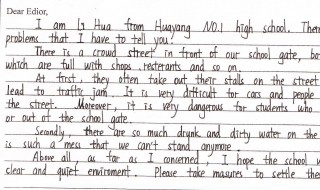 Dear Edior,
I am Li Hua from Huayang NO.1 high school. Ther
problems that I have to tell you?
There is a crowd street in front of our school gate, bo
which are full with shops, resterants and so on
At first, they often take out their stalls on the street
lead to traffic jam. It is very difficult for cars and people
the street. Moreover, it is very dangerous for students who
or out of the school gate.
Secondly, there are so much drunk and dirty water on the
is such a mess that we can't stand anymore
Above all, as far as I concerned, I hope the school w
clear and quiet enviroment. Please take masures to settle the